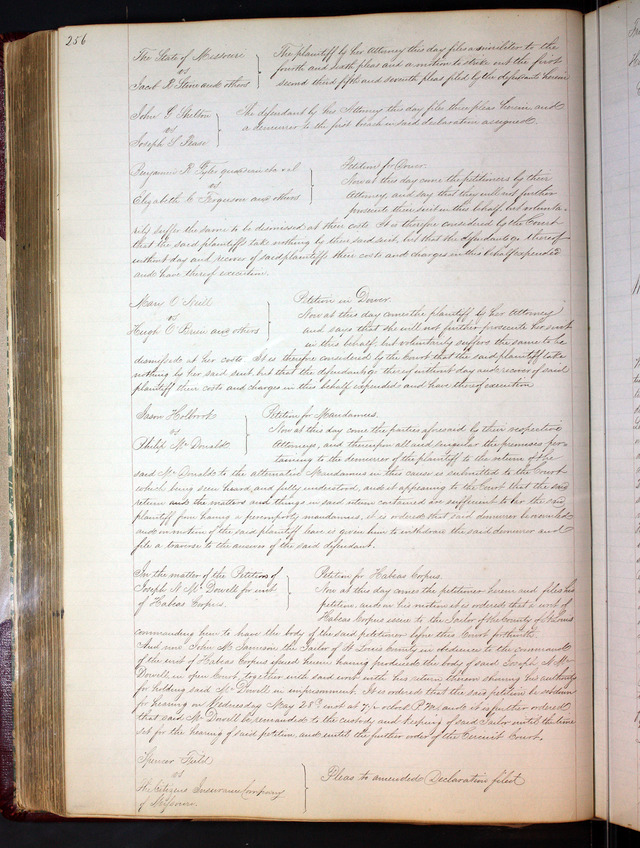 256
The State of Missouri
vs
Jacob R Stine and others
The plaintiff by her Attorney this day files a demurrer to the
fourth and sixth pleas and a motion to strike out the first
second third fifth and seventh pleas filed by the defendants herein
John G Shelton
vs
Joseph S Pease
The defendant by his Attorney this day file their pleas herein and
a demurrer to the first breach in said declaration assigned.
Benjamin R Tyler guardian et al
vs
Elizabeth C Ferguson and others
Petition for Dower.
Now at this day come the petitioners by their
Attorney and say that they will not further
prosecute their suit in this behalf, but volunta-
rily suffer the same to be dismissed at their costs. It is therefore considered by the Court
that the said plaintiffs take nothing by their said suit, but that the defendants go thereof
without day and recover of said plaintiffs their costs and charges in this behalf expended
and have thereof execution.
Mary O'Neill
vs
Hugh O'Brien and others
Petition in Dower.
Now at this day comes the plaintiff by her Attorney
and says that she will not further prosecute her suit
in this behalf, but voluntarily suffers the same to be
dismissed at her costs. It is therefore considered by the Court that the said plaintiff take
nothing by her said suit, but that the defendants go thereof without day and recover of said
plaintiff their costs and charges in this behalf expended and have thereof execution
Jason Holbrook
vs
Philip McDonald
Petition for Mandamus.
Now at this day come the parties aforesaid by their respective
Attorneys, and thereupon all and singular the premises per-
taining to the demurrer of the plaintiff to the return of the
said McDonald to the alternative Mandamus in this cause is submitted to the Court
which being seen heard and fully understood, and it appearing to the Court that the said
return and the matters and things in said return contained are sufficient to bar the said
plaintiff from having a peremptory mandamus, it is ordered that said demurrer be overruled
and on motion of the said plaintiff leave is given him to withdraw the said demurrer and
file a traverse to the answer of the said defendant.
In the matter of the Petition of
Joseph N McDowell for writ
of Habeas Corpus.
Petition for Habeas Corpus.
Now at this day comes the petitioner herein and files his
petition and on his motion it is ordered that a writ of
Habeas Corpus issue to the Jailor of the County of St Louis
commanding him to have the body of the said petitioner before this Court forthwith.
And now John M Jameson the Jailor of St Louis County in obedience to the command
of the writ of Habeas Corpus issued herein having produced the body of said Joseph N Mc
Dowell in open Court together with said writ with his return thereon shewing his authority
for holding said McDowell in imprisonment. It is ordered that the said petition be set down
for hearing on Wednesday May 25th inst at 7 1/2 oclock P.M. and it is further ordered
that said McDowell be remanded to the custody and keeping of said Jailor until the time
set for the hearing of said petition, and until the further order of the Circuit Court.
Spencer Field
vs
The Citizens Insurance Company
of Missouri.
Pleas to amended Declaration filed